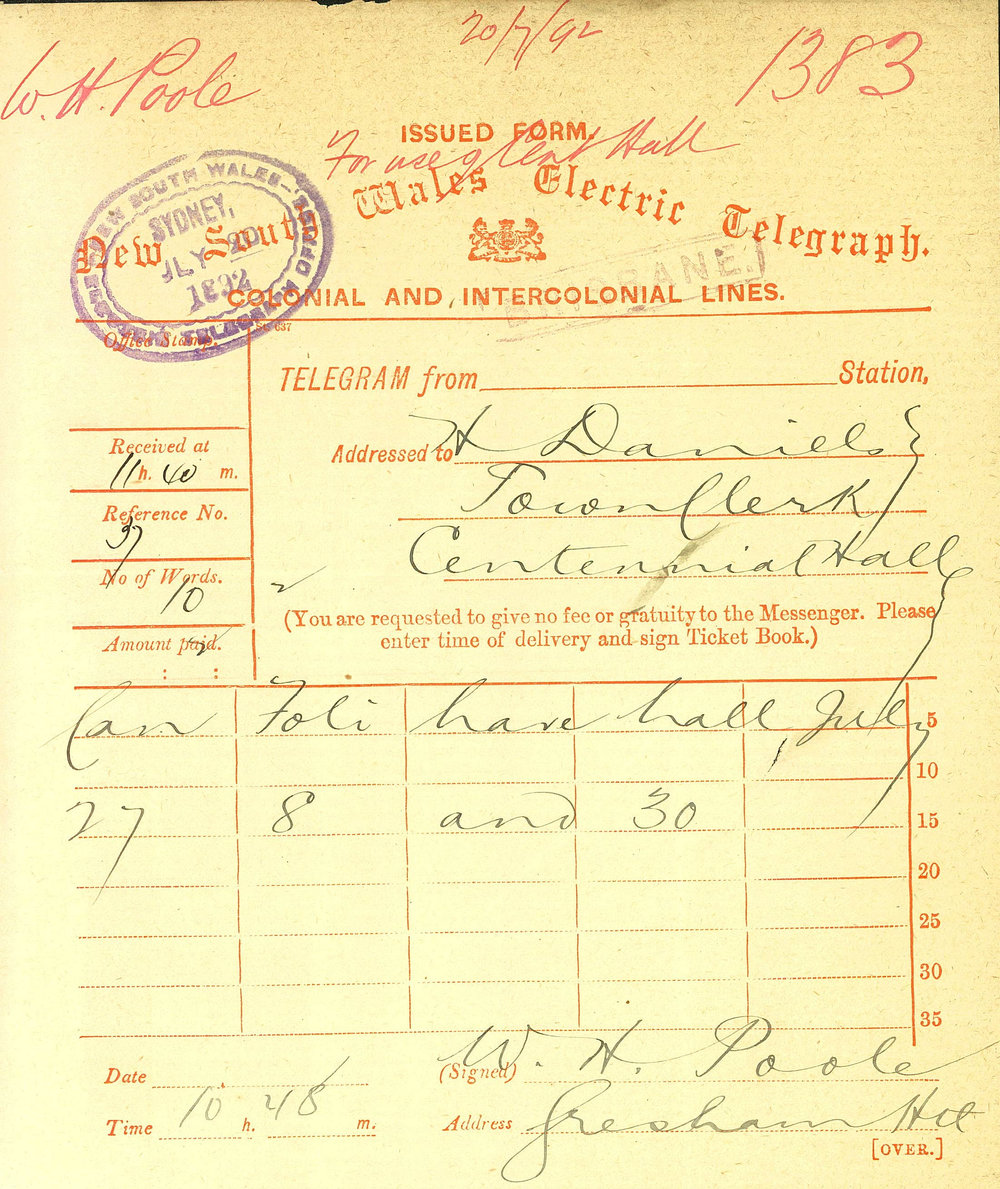 20/7/92
W. H. Poole
1383
ISSUED FORM.
For use of Cent Hall
New South Wales Electric Telegraph.
NEW SOUTH WALES
ELECTRIC TELEGRAPH OFFICE
SYDNEY,
JLY 20
1892
BRISBANE.
COLONIAL AND INTERCOLONIAL LINES.
SG 637
Office Stamp.
TELEGRAM from Station,
Received at
11 h. 40 m.
Addressed to H Daniels
Reference No.
37
Town Clerk
No of Words.
10
Centennial Hall
(You are requested to give no fee or gratuity to the Messenger. Please
enter time of delivery and sign Ticket Book.)
Amount paid.
: :
Can Foli have hall, July 5
10
27 8 and 30 15
20
25
30
35
Date
(Signed) W. H. Poole
Time 10 h. 48 m.
Address Gresham Hot
[OVER.]